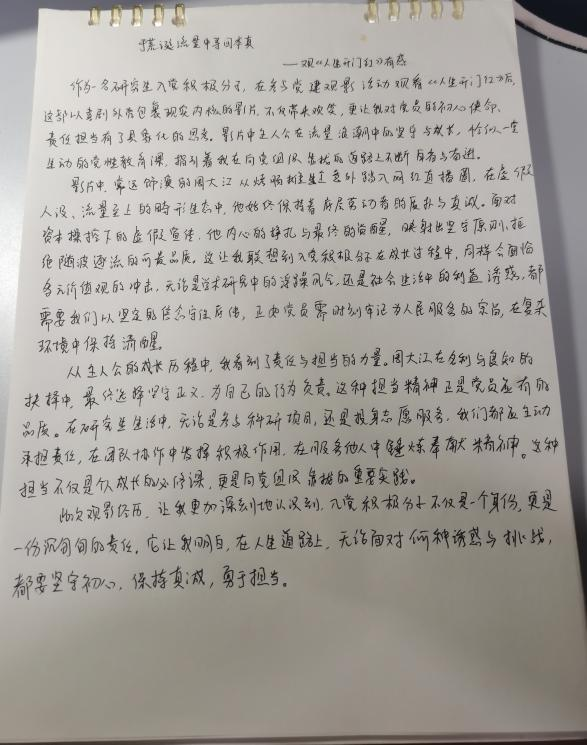 于荒诞流量中寻回本真
——观《人生开门红》有感
作为一名研究生入党积极分子，在参与党建观影活动观看《人生开门红》后，
这部以喜剧外壳包裹现实内核的影片，不仅带来欢笑，更让我对党员的初心使命、
责任担当有了具象化的思考。影片中主人公在流量浪潮中的坚守与成长，恰似一堂
生动的党性教育课，指引着我在向党组织靠拢的道路上不断自省与奋进。
影片中，常远饰演的周大江从烤肠摊主意外踏入网红直播圈，在虚假
人设、流量至上的畸形生态中，他始终保持着底层劳动者的质朴与真诚。面对
资本操控下的虚假宣传，他内心的挣扎与最终的觉醒，映射出坚守原则、拒
绝随波逐流的可贵品质。这让我联想到入党积极分子在成长过程中，同样会面临
多元价值观的冲击，无论是学术研究中的浮躁风气，还是社会生活中的利益诱惑，都
需要我们以坚定的信念守住底线，正如党员需时刻牢记为人民服务的宗旨，在复杂
环境中保持清醒。
从主人公的成长历程中，我看到了责任与担当的力量。周大江在名利与良知的
抉择中，最终选择坚守正义，为自己的行为负责。这种担当精神正是党员应有的
品质。在研究生生活中，无论是参与科研项目，还是投身志愿服务，我们都应主动
承担责任，在团队协作中发挥积极作用，在服务他人中锤炼奉献精神。这种
担当不仅是个人成长的必修课，更是向党组织靠拢的重要实践。
此次观影经历，让我更加深刻地认识到，入党积极分子不仅是一个身份，更是
一份沉甸甸的责任。它让我明白，在人生道路上，无论面对何种诱惑与挑战，
都要坚守初心，保持真诚，勇于担当。